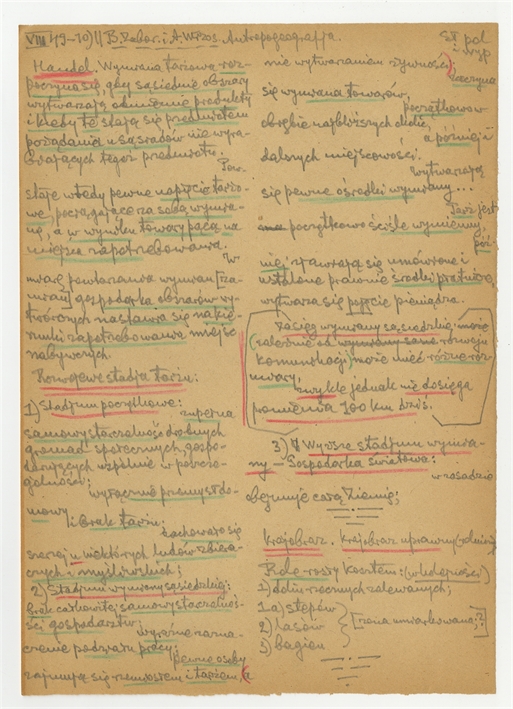 VIII (49-50) || B. Zabor. i A. Wrzos. Antropogeografja.
St. pol. i wyp.
Handel. Wymiana targowa roz-
poczyna się gdy sąsiednie obszary
wytwarzają odmienne produkty
i kiedy te stają się przedmiotem
pożądania u sąsiadów nie wyra-
biających tegoż przedmiotu.
Pow-
staje wtedy pewne napięcie targo-
we, pociągające za sobą wymia-
nę, a w wyniku towary płyną na
miejsce zapotrzebowania.
W
miarę powtarzania wymian [za-
mian] gospodarka obszarów wy-
twórczych nastawia się na kie-
runki zapotrzebowania miejsc
nabywczych.
Rozwojowe stadja targu:
1) Stadjum początkowe:
zupełna
samowystarczalność drobnych
gromad społecznych gospo-
darujących wspólnie w pełnej
ogólności;
wyłącznie przemysł do-
mowy
i brak targu;
zachowało się
u niektórych ludów zbiera-
czych i myśliwskich;
2) Stadjum wymiany sąsiedzkiej:
brak całkowitej samowystarczalnoś-
ci gospodarstw;
wyraźne zazna-
czenie podziału pracy;
pewne osoby
zajmują się rzemiosłem i targiem, a
nie wytwarzaniem żywności;
zaczyna
się wymiana towarów,
początkowo
obrębie najbliższych okolic,
a później i
dalszych miejscowości.
Wytwarzają
się pewne ośrodki wymiany...
Targ jest
początkowo ściśle wymienny,
póź-
niej zjawiają się umówione i
ustalone prawnie środki płatnicze,
wytwarza się pojęcie pieniądza.
Zasięg wymiany sąsiedzkiej może
(zależnie od rozwoju
komunikacji) może mieć różne roz-
miary,
zwykle jednak nie dosięga
promienia 100 km dziś.
3) Wyższe stadjum wymia-
ny – Gospodarka światowa:
w zasadzie
obejmuje całą Ziemię;
Krajobraz. Krajobraz uprawny (rolniczy)
Role rosły kosztem: (w kolejności)
1) dolin rocznych zalewanych;
1a) stepów
2) lasów
3) bagien
[zona umiarkowana:?]